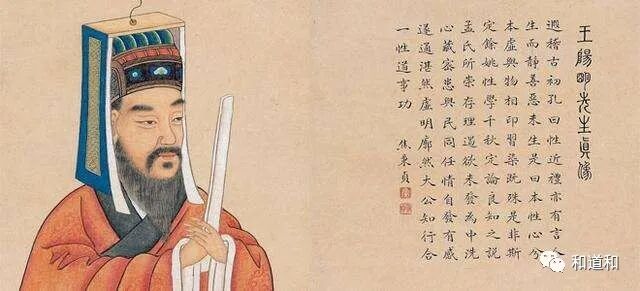 王陽明先生眞像
遐稽古初孔曰性近禮亦有言人
生而靜善惡未生是曰本性心兮
本虛與物相印習染既殊是非斯
定餘姚性學千秋定論良知之說
孟氏所崇存理遏欲未發為中洗
心藏密患與民同任情自發有感
遂通湛然虛明廓然大公知行合
一性道事功 焦秉貞
和道和